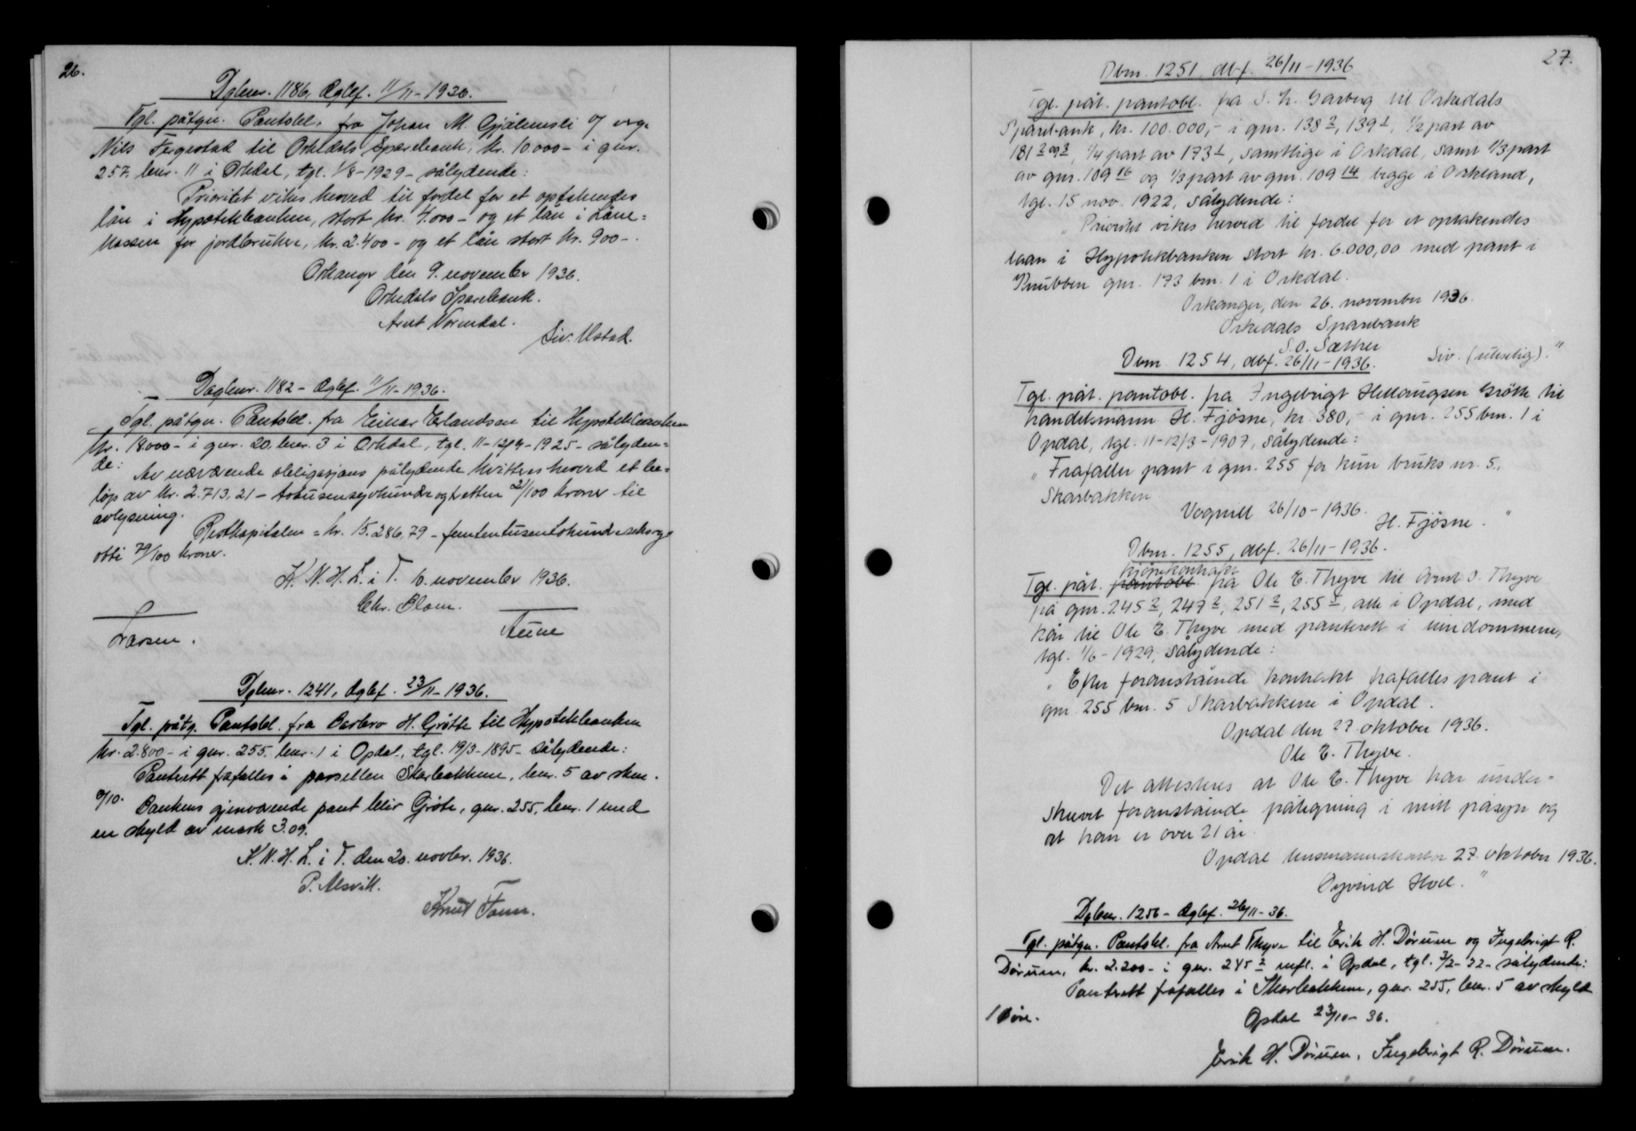 26.
Dgbnr. 1186, dgbf. 11/11-1936.
Tgl. påtgn. Pantobl. fra Johan M. Gjølmesli og
Nils Fegestad til Orkdals Sparebank, kr. 10.000- i gnr.
257, bnr. 11 i Orkdal, tgl. 1/8-1929- sålydende:
Prioritet vikes herved til fordel for et optakendes
lån i Hypotekbanken, stort kr. 4.000- og et lån i Låne=
kassen for jordbrukere, kr. 2.400- og et lån stort kr. 900-.
Orkanger den 9. november 1936.
Orkedals Sparebank.
Arnt Norendal.
Siv. Ustad.
Dagbnr. 1182 - dgbf. 11/11-1936.
Tgl. påtgn. Pantobl. fra Einar Erlandsen til Hypotekbanken
kr. 18000- i gnr. 20, bnr. 3 i Orkdal, tgl. 11-12/9-1925- sålyden=
de:
Av nærværende obligasjons pålydende kvitteres herved et be=
løp av kr. 2.713.21- totusensyvhundreogtretten 21/100 kroner til
avlysning.
Restkapitalen = kr. 15.286.79 - femtentusentohundreseksog
otti 79/100 kroner.
K.N.H.L. i T. 10. november 1936.
Chr. Blom.
Larsen.
Aune
Dgbnr. 1241, dgbf. 23/11-1936.
Tgl. påtg. Pantobl. fra Barbro H. Grøtte til Hypotekbanken
kr. 2.800- i gnr. 255, bnr. 1 i Opdal, tgl. 19/3-1895- sålydende:
Panterett frafalles i parsellen Skarbakken, bnr. 5 av skm.
0/10. Bankens gjenværende pant blir Grøte, gnr. 255, bnr. 1 med
en skyld av mark 3.09.
K.N.H.L. i T. den 20. novbr. 1936.
P. Alsvik.
Knut Tønn.
27.
Dbnr. 1251, dbf. 26/11-1936
Tgl. påt. pantobl. fra S. H. Garberg til Orkedals
Sparebank, kr. 100.000,- i gnr. 138 2, 139 1, 1/2 part av
181 2 og 3, 1/4 part av 173 1, samtlige i Orkdal, samt 1/3 part
av gnr. 109 16 og 1/3 part av gnr. 109 14 begge i Orkland,
tgl. 15 nov. 1922, sålydende:
"Prioritet vikes herved til fordel for et optakendes
laan i Hypotekbanken stort kr. 6.000,00 med pant i
Knubben gnr. 173 bnr. 1 i Orkdal.
Orkanger, den 26. november 1936.
Orkedals Sparebank
S. O. Sæther
Siv. (utydelig)."
Dbnr 1254, dbf. 26/11-1936.
Tgl. påt. pantobl. fra Ingebrigt Haldorsen Grøtte til
handelsmann H. Fjøsne, kr. 380,- i gnr. 255 bnr. 1 i
Opdal, tgl. 11-12/3-1907, sålydende:
"Frafaller pant i gnr. 255 for kun bruks nr. 5,
Skarbakken
Vognill 26/10-1936.
H. Fjøsne."
Dbnr. 1255, dbf. 26/11-1936.
kjøpekontrakt
Tgl. påt. pantobl. fra Ole E. Thyve til Arnt O. Thyve
på gnr. 245 2, 247 2, 251 2, 255 5, alle i Opdal, med
kår til Ole E. Thyve med panterett i eiendommene,
tgl. 1/6-1929, sålydende:
"Efter foranstående kontrakt frafalles pant i
gnr 255 bnr. 5 Skarbakkene i Opdal.
Opdal den 27 oktober 1936.
Ole E. Thyve.
Det attesteres at Ole E. Thyve har under=
skrevet foranstående påtegning i mitt påsyn og
at han er over 21 år.
Opdal lensmannskontor 27 oktober 1936.
Øyvind Hoel."
Dgbnr. 1256 - dgbf. 26/11-36.
Tgl. påtgn. Pantobl. fra Arnt Thyve til Erik H. Dørum og Ingebrigt R.
Dørum, kr. 2.200- i gnr. 245 2 mfl. i Opdal, tgl. 7/2-32- sålydende:
Panterett frafalles i Skarbakken, gnr. 255, bnr. 5 av skyld
1 øre.
Opdal 23/10-36.
Erik H. Dørum, Ingebrigt R. Dørum.